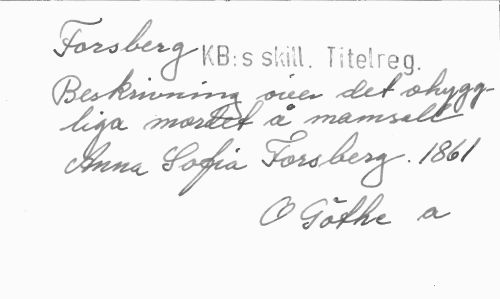 Forsberg KB:s skill. Titelreg.
Beskrivning över det ohygg-
liga mordet å mamsell
Anna Sofia Forsberg. 1861
O Göthe a